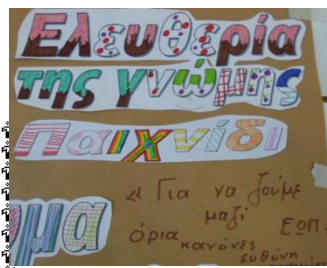 Ελευθερία
της γνώμης
Παιχνίδι
μα
« Για να ζούμε
μαζί
όρια
κανόνες
ευθύνη